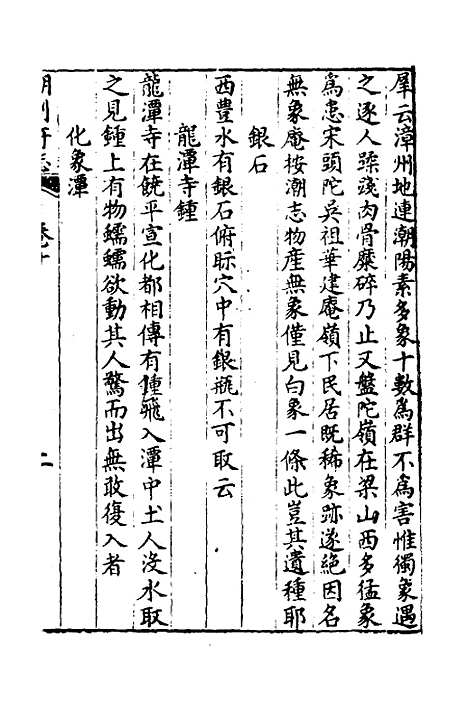 犀云漳州地連潮陽素多象十數為群不為害惟獨象遇
之逐人蹂踐肉骨糜碎乃止又盤陀嶺在梁山西多猛象
為患宋頭陀吳祖華建庵嶺下民居既稀象跡遂絕因名
無象庵按潮志物産無象僅見白象一條此豈其遺種耶
銀石
西豊水有銀石俯眎穴中有銀瓶不可取云
龍潭寺鍾
龍潭寺在饒平宣化都相傳有鍾飛入潭中土人没水取
之見鍾上有物蠕蠕欲動其人驚而出無敢復入者
化象潭
卷十
二